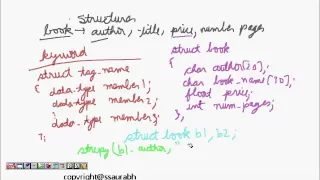 Structures
book → author, title, price, number pages
keyword
struct tag_name
{
data-type member1;
data-type member2;
data-type member3;
};
struct book
{
char author[20];
char book_name[30];
float price;
int num_pages;
};
struct book b1, b2;
strcpy(b1.author, "
copyright@ssaurabh